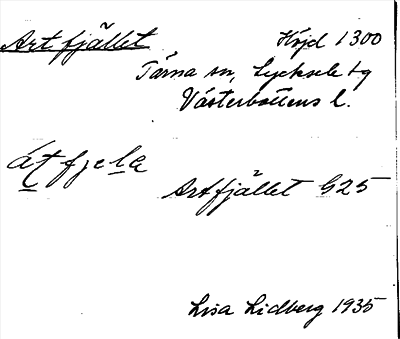 Artfjället Höjd 1300
Tärna sn, Lycksele tg
Västerbottens l.
átfjela
Artfjället G25
Lisa Lidberg 1935